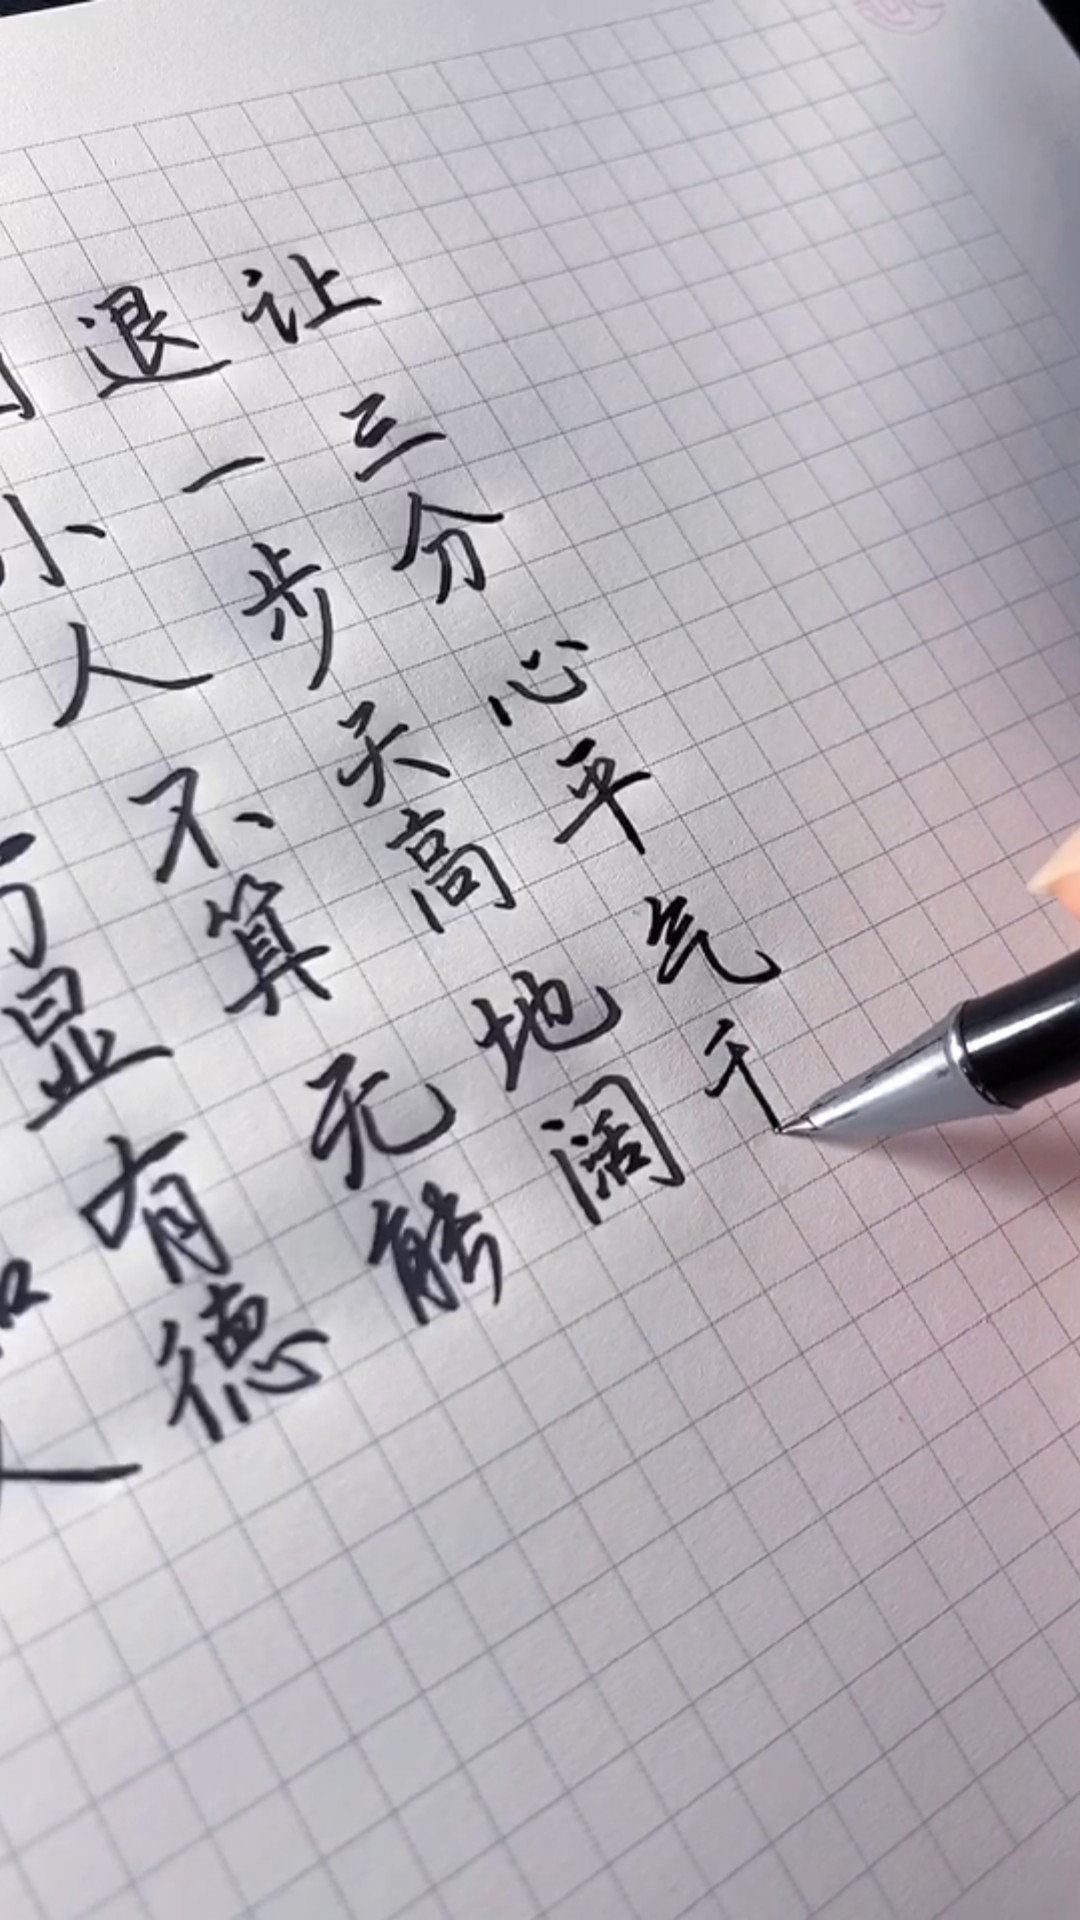 显有德
小人不算无能
退一步天高地阔
让三分心平气